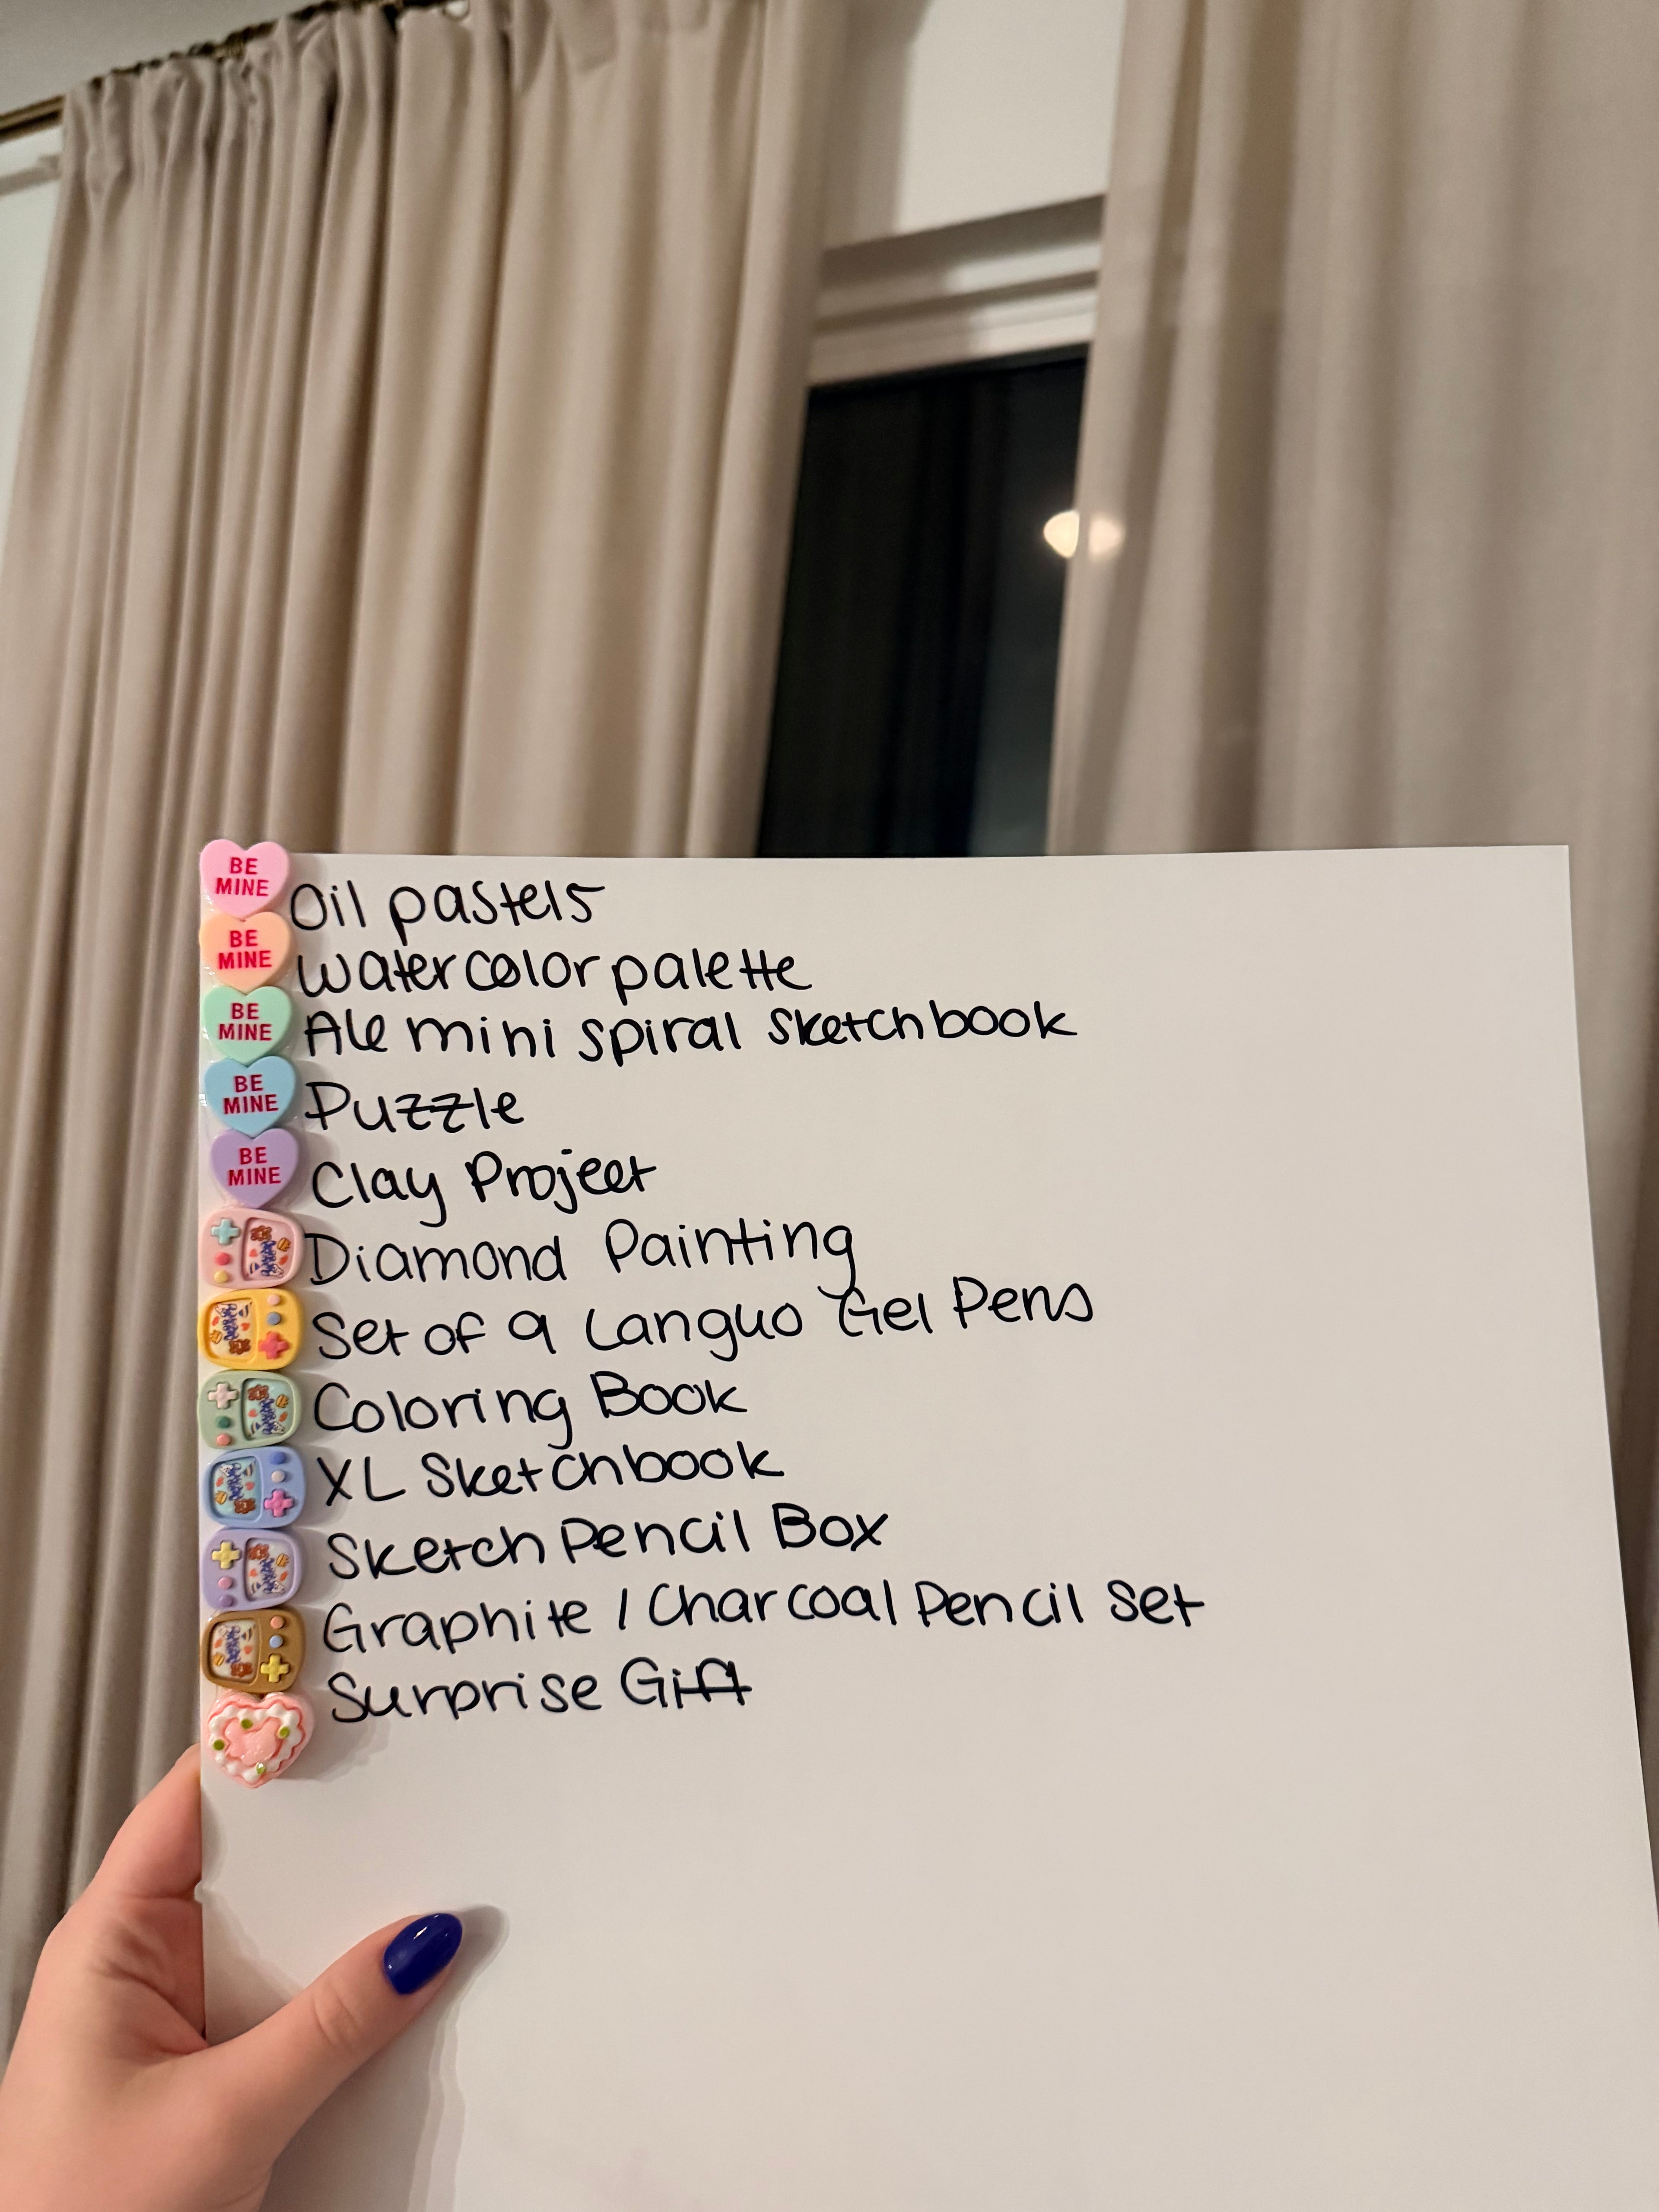 BE MINE Oil pastels
BE MINE Watercolor palette
BE MINE Ale mini spiral sketchbook
BE MINE Puzzle
BE MINE Clay Project
Diamond Painting
Set of 9 Languo Gel Pens
Coloring Book
XL Sketchbook
Sketch Pencil Box
Graphite / Charcoal Pencil Set
Surprise Gift